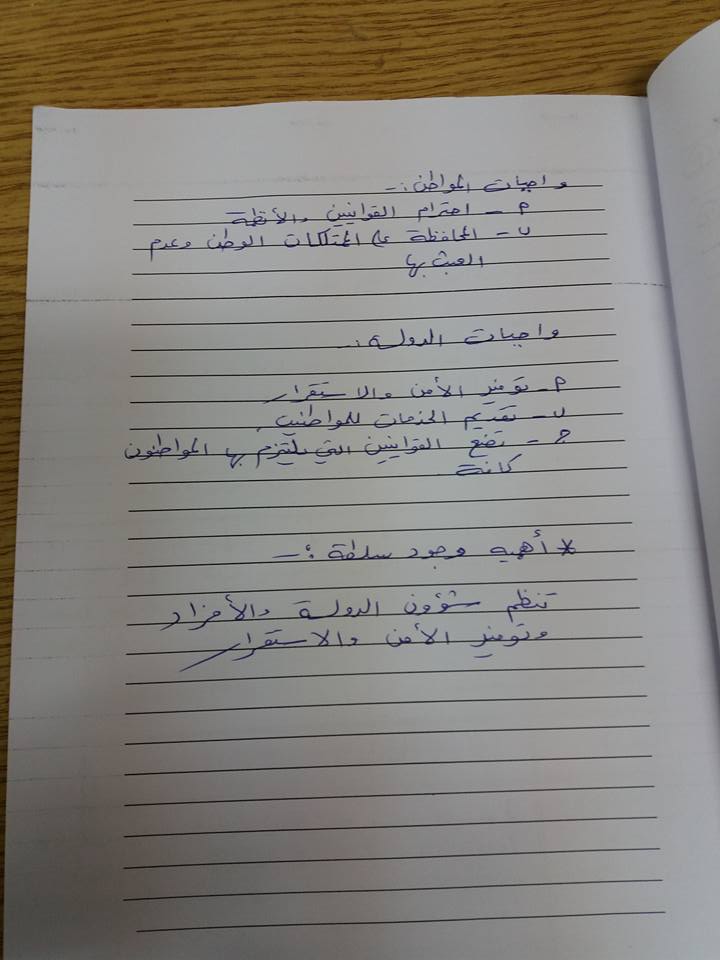 واجبات المواطن :-
أ - احترام القوانين والأنظمة
ب - المحافظة على الممتلكات الوطن وعدم
العبث بها
واجبات الدولة :-
أ - توفير الأمن والاستقرار
ب - تقديم الخدمات للمواطنين
ج - تضع القوانين التي يلتزم بها المواطنون
كافة
* أهمية وجود سلطة :-
تنظم شؤون الدولة والأفراد
وتوفير الأمن والاستقرار